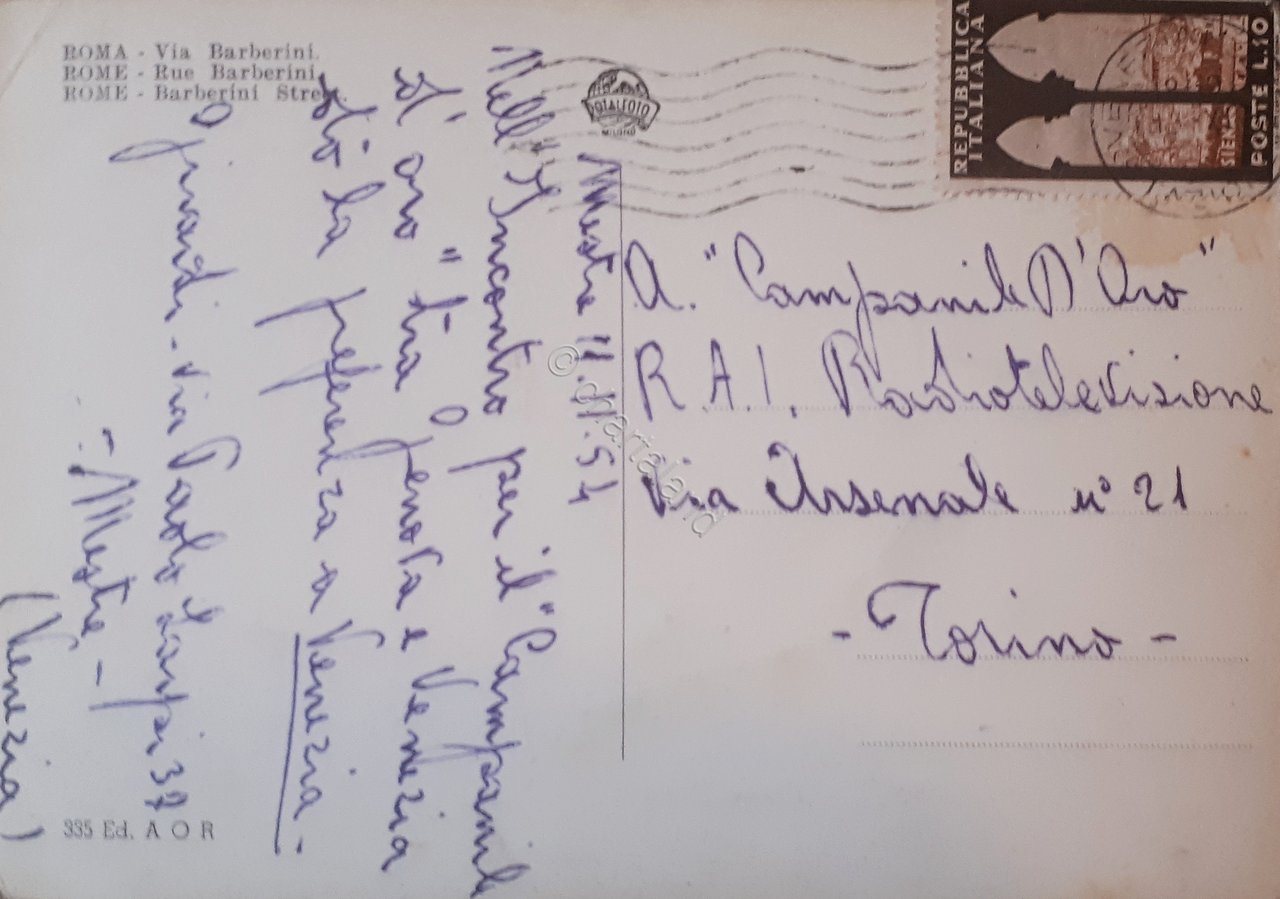 ROMA - Via Barberini.
ROME - Rue Barberini
ROME - Barberini Street
TOTALFOTO
MILANO
REPUBBLICA
ITALIANA
SIENA
POSTE L.10
A. "Campanile D'Oro"
R.A.I. Radiotelevisione
Via Arsenale n° 21
- Torino -
Mestre 11.11.54
Nell'Incontro per il "Campanile
d'oro" tra Genova e Venezia
dò la preferenza a Venezia.-
via Paolo 37
- Mestre -
(Venezia)
335 Ed. A O R
© cartaland